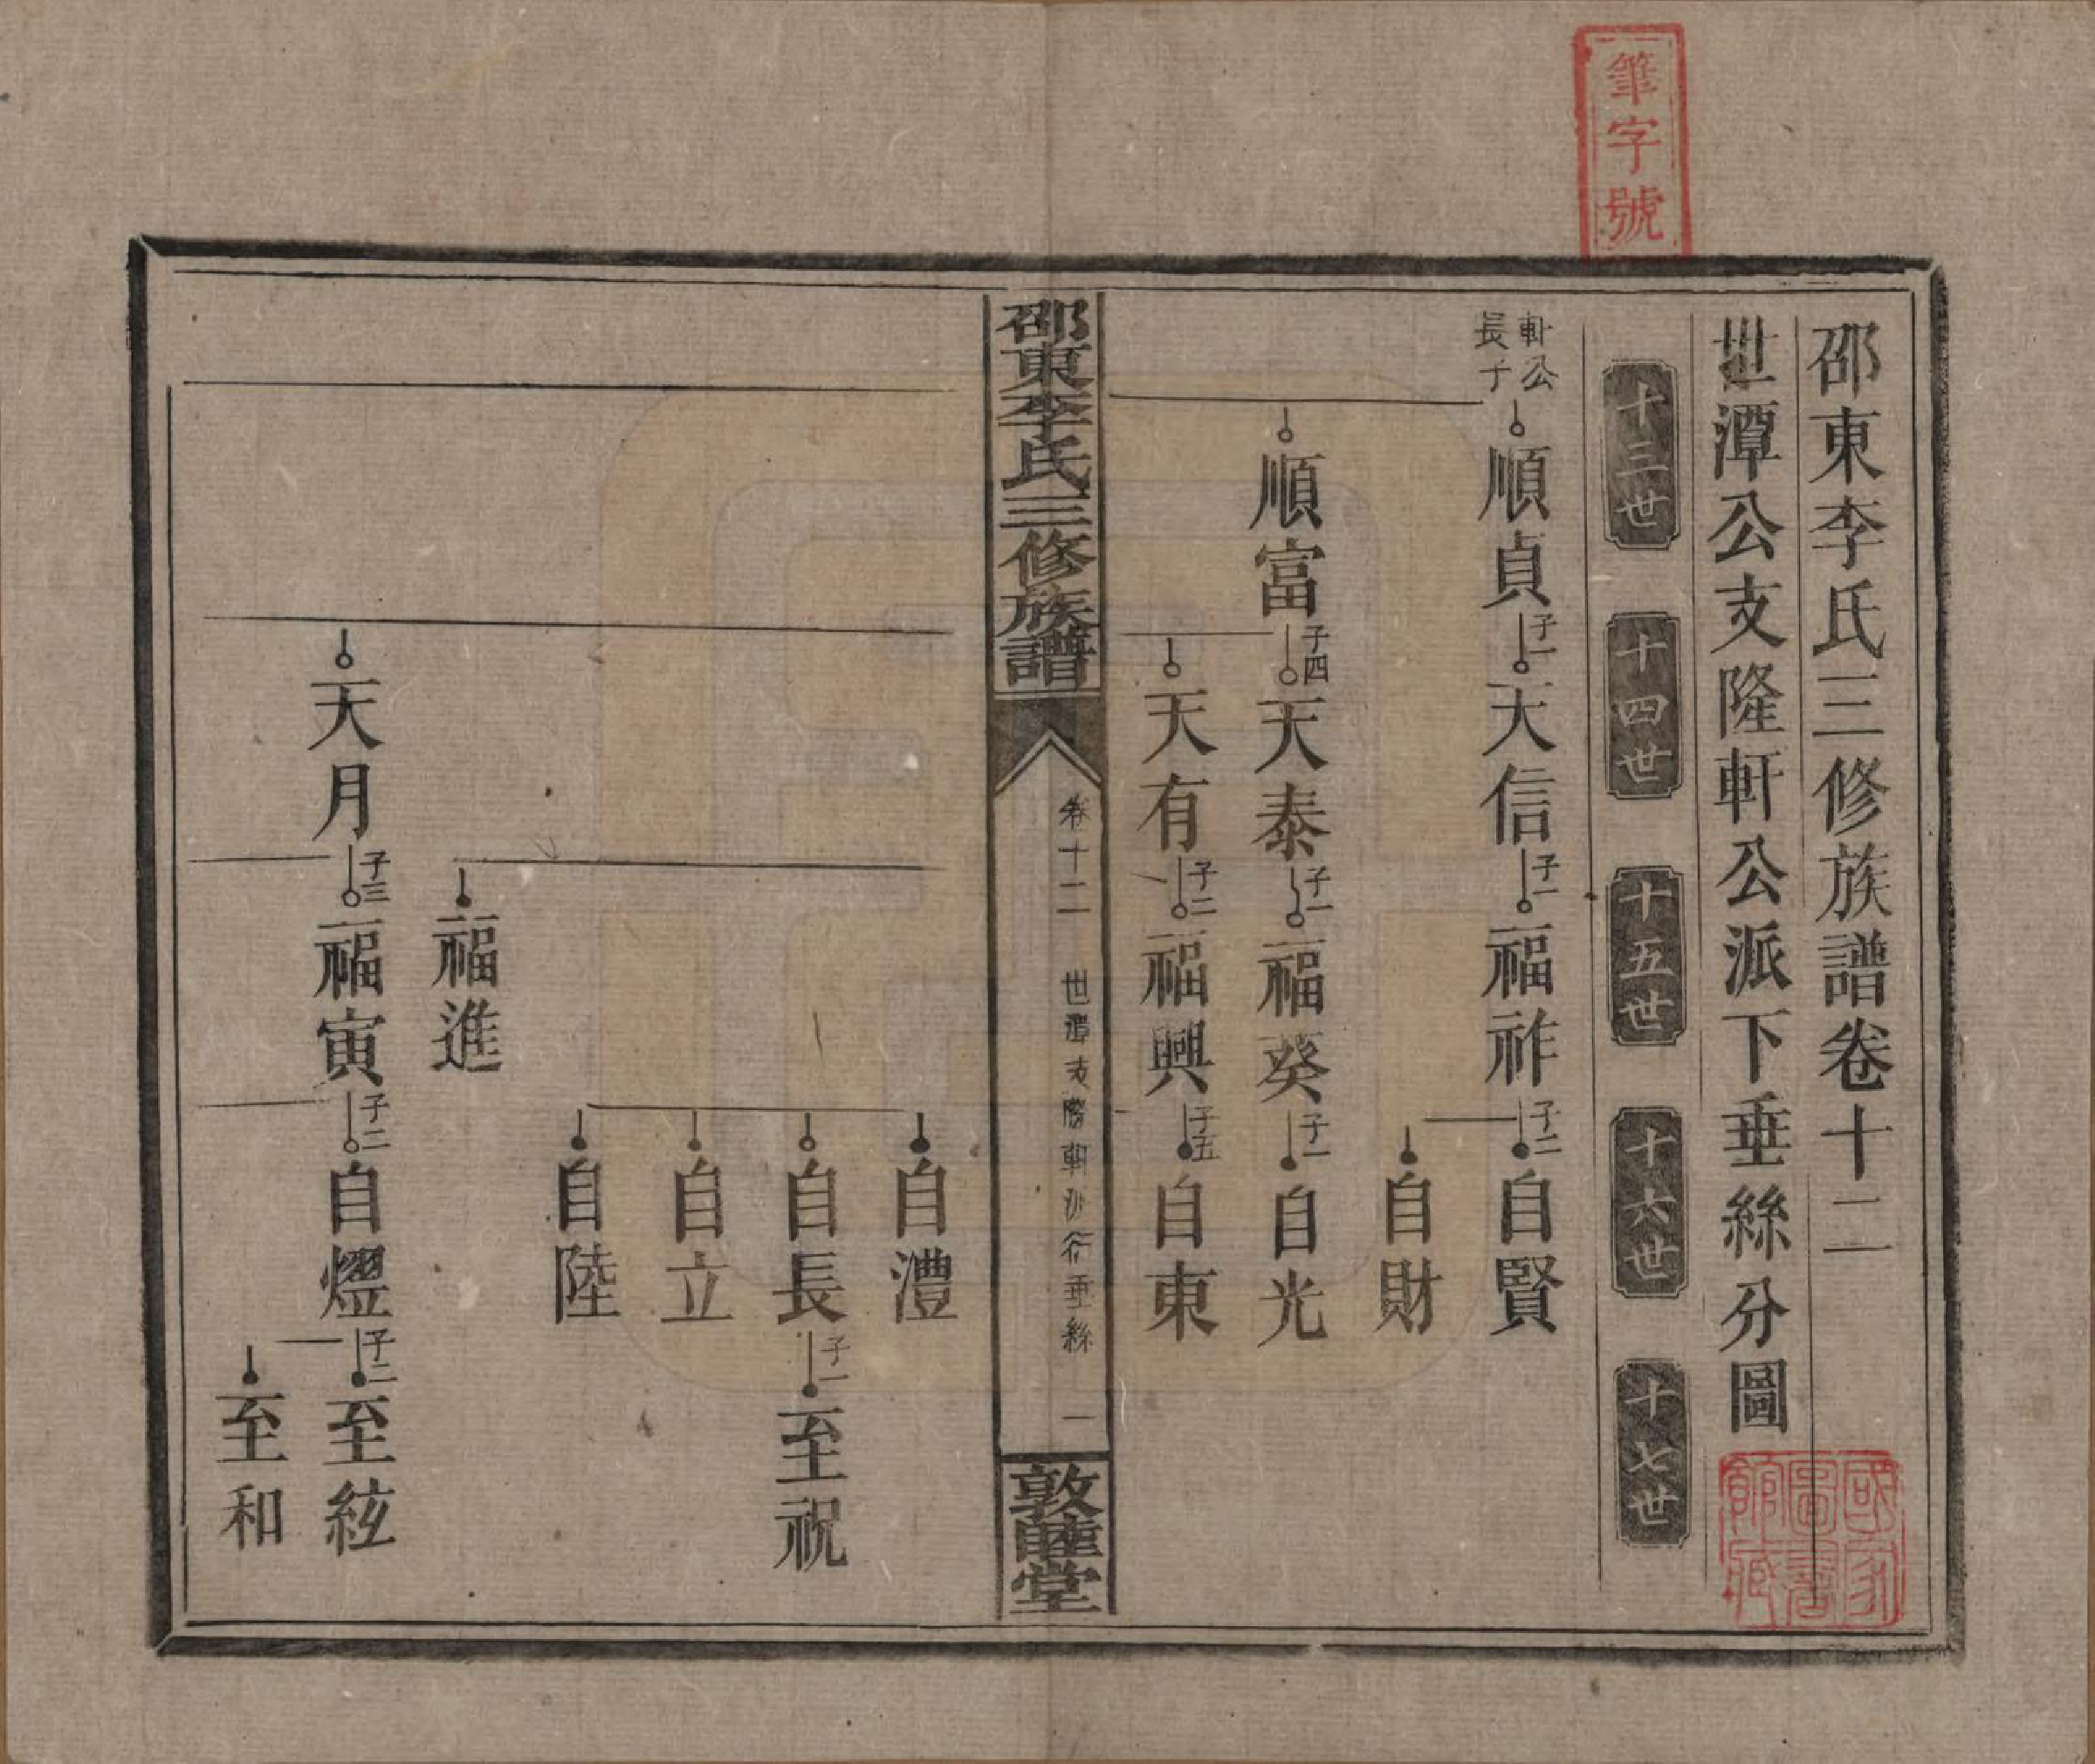 筆字號
邵東李氏三修族譜卷十二
世潭公支隆軒公派下垂絲分圖
十三世 十四世 十五世 十六世 十七世
軒公長子 順貞 子一 天信 子一 福祚 子二 自賢
自財
順富 子四 天泰 子一 福癸 子一 自光
天有 子二 福興 子五 自東
邵東李氏三修族譜 卷十二 世潭支隆軒派衍垂絲 一 敦睦堂
自澧
自長 子一 至祝
自立
自陸
福進
天月 子三 福寅 子二 自燿 子二 至絃
至和
國家圖書館藏